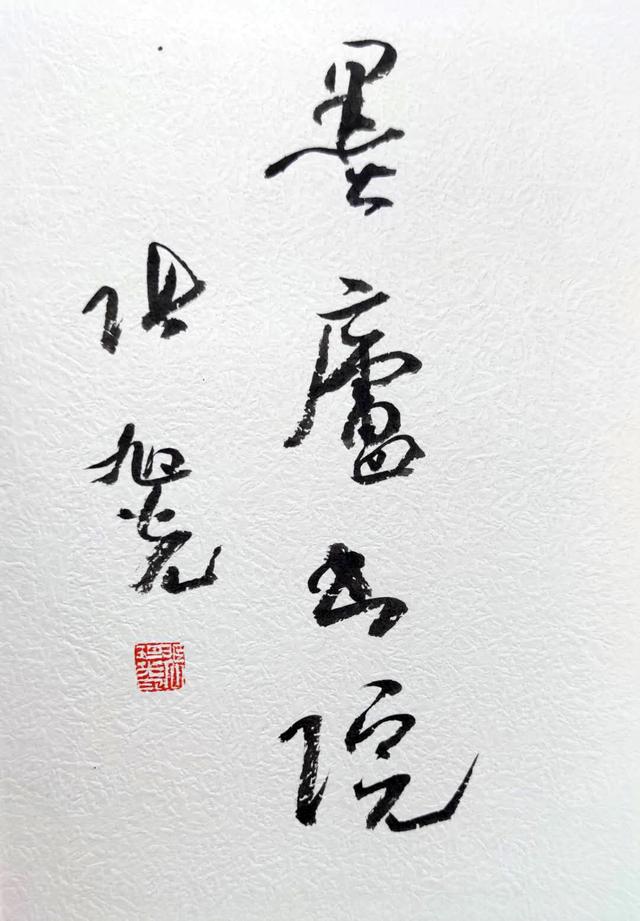 墨廬書院
張旭光